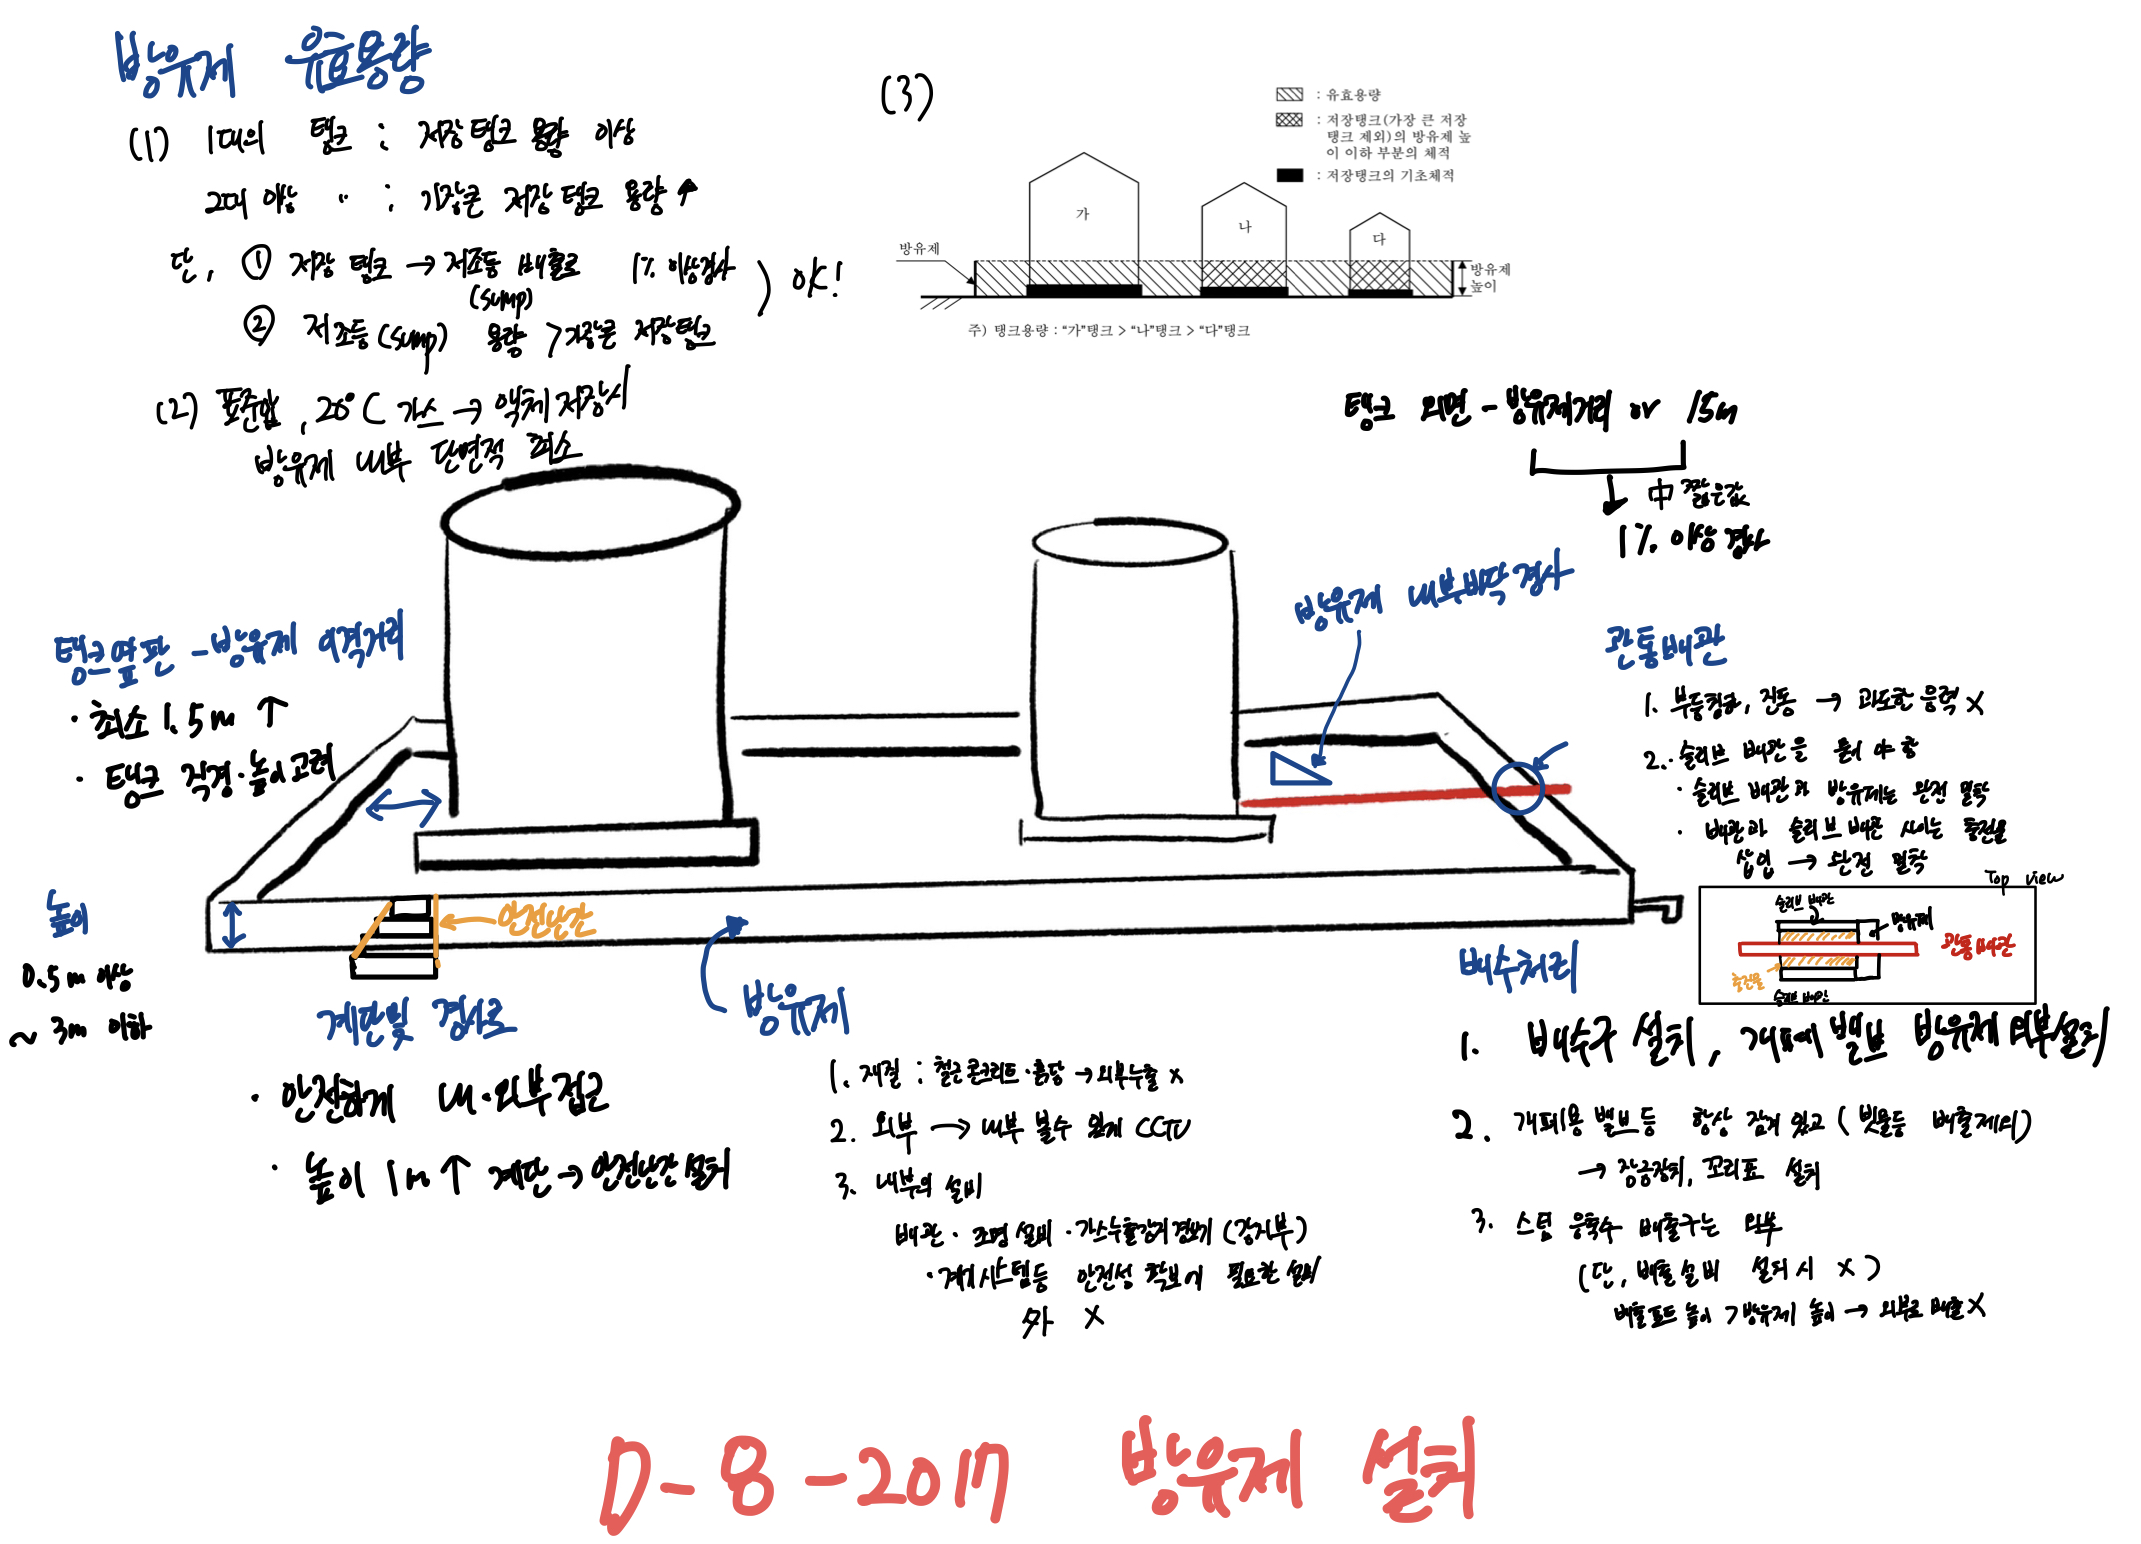 방유제 유효용량
(1) 1대의 탱크 : 저장탱크 용량 이상
2대 이상 〃 : 가장큰 저장탱크 용량↑
단, ① 저장 탱크 → 저조등 배출로 1% 이상경사
(sump)
② 저조등(sump) 용량 > 가장큰 저장탱크
) OK!
(2) 표준압, 20°C 가스 → 액체 저장시
방유제 내부 단면적 최소
(3)
: 유효용량
: 저장탱크(가장 큰 저장
탱크 제외)의 방유제 높
이 이하 부분의 체적
: 저장탱크의 기초체적
가
나
다
방유제
방유제
높이
주) 탱크용량 : "가"탱크 > "나"탱크 > "다"탱크
탱크 외면 - 방유제거리 or 15m
↓ 中 짧은값
1% 이상 경사
방유제 내부바닥경사
탱크옆판 - 방유제 이격거리
· 최소 1.5m ↑
· 탱크 직경·높이 고려
높이
0.5m 이상
~ 3m 이하
안전난간
계단및 경사로
· 안전하게 내·외부접근
· 높이 1m↑ 계단 → 안전난간 설치
방유제
1. 재질 : 철근콘크리트·흙담 → 외부누출 x
2. 외부 → 내부 볼수 있게 CCTV
3. 내부의 설비
배관 · 조명설비 · 가스누출감지경보기 (감지부)
· 계기시스템등 안전성 확보에 필요한 설비
外 x
관통배관
1. 부등침하, 진동 → 과도한 응력 x
2. · 슬리브 배관을 둬야 함
· 슬리브 배관과 방유제는 완전 밀착
· 배관과 슬리브 배관 사이는 충전물
삽입 → 완전 밀착
Top view
슬리브 배관
방유제
관통배관
충전물
슬리브 배관
배수처리
1. 배수구 설치, 개폐밸브 방유제 외부설치
2. 개폐용 밸브등 항상 잠겨있고 (빗물등 배출제외)
→ 잠금장치, 꼬리표 설치
3. 스팀 응축수 배출구는 외부
(단, 배출설비 설치시 x)
배출포트 높이 > 방유제 높이 → 외부로 배출 x
D-8-2017 방유제 설치